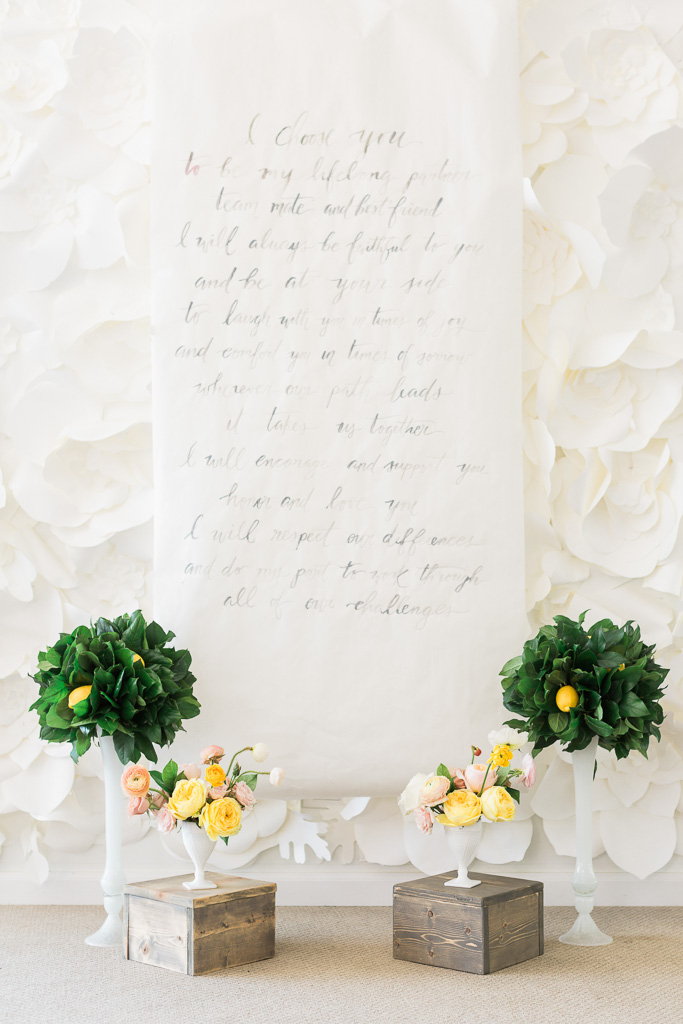 I choose you
to be my lifelong partner
team mate and best friend
I will always be faithful to you
and be at your side
to laugh with you in times of joy
and comfort you in times of sorrow
wherever our path leads
it takes us together
I will encourage and support you
honor and love you
I will respect our differences
and do my part to work through
all of our challenges